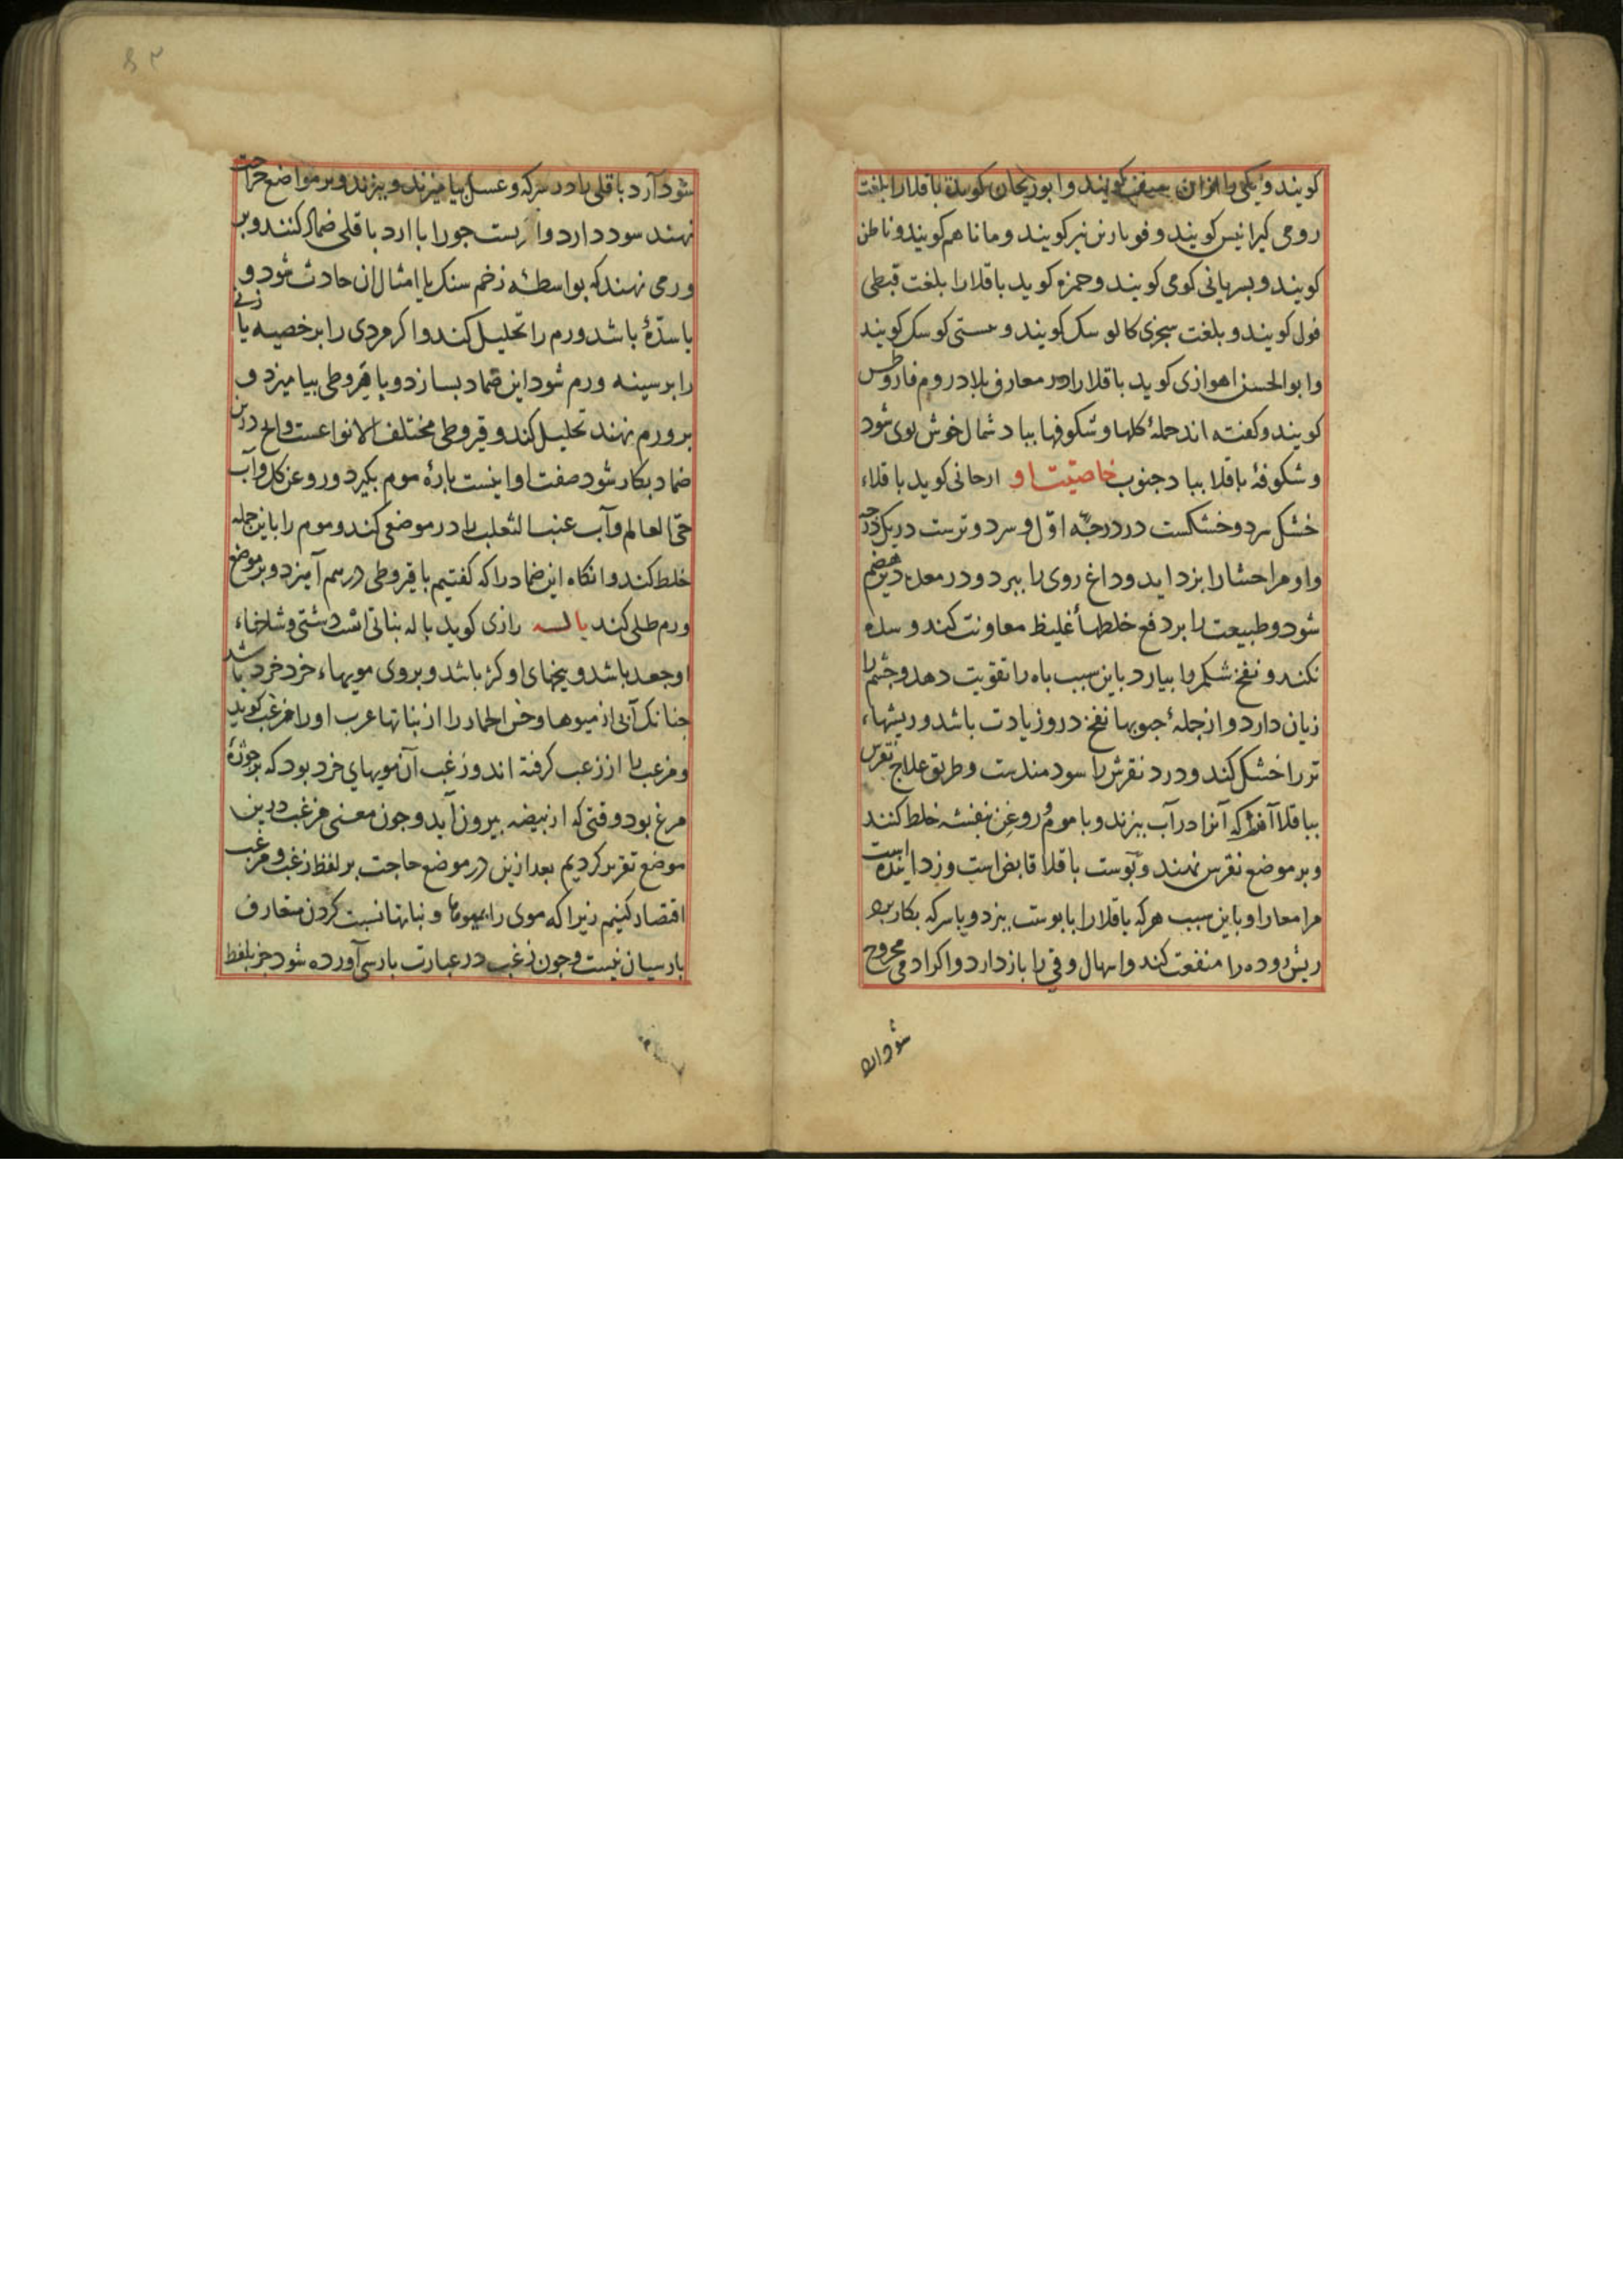 کویند و یکی را ازان کویند و ابوریحان کوید باقلا را بلغت
رومی کیرانیس کویند و فوبارنن نیز کویند و مانا هم کویند و ناطن
کویند و بسریانی کومی کویند و حمزه کوید باقلا را بلغت قبطی
فول کویند و بلغت سجزی کالوسک کویند و بستی کوسک کویند
و ابوالحسن اهوازی کوید باقلا را در معارف بلاد روم فاروطس
کویند و کفته اند جملهٔ کلها و شکوفها بباد شمال خوش بوی شود
و شکوفهٔ باقلا بباد جنوب خاصیت او ارجانی کوید باقلاء
خشک سرد و خشکست در درجه اوّل و سرد و ترست در یک درجه
و او مر احشا را بزداید و داغ روی را ببرد و در معده دیر هضم
شود و طبیعت را بر دفع خلطهاء غلیظ معاونت کند و سده
نکند و نفخ شکم را بیارد باین سبب باه را تقویت دهد و چشم را
زیان دارد و از جملهٔ حبوبها نفخ درو زیادت باشد و ریشهاء
تر را خشک کند و درد نقرس را سودمندست و طریق علاج نقرس
بباقلا آنست که آنرا در آب بپزند و با موم و روغن بنفشه خلط کنند
و بر موضع نقرس نهند و پوست باقلا قابض است و زداینده است
مر امعا را و باین سبب هرکه باقلا را با پوست بپزد و با سرکه بکار برد
ریش روده را منفعت کند و اسهال و قی را باز دارد و اکر ادمی مجروح
شود ارد
شود آرد باقلی را در سرکه و عسل بیامیزند و بپزند و بر مواضع جراحت
نهند سود دارد و اربست جو را با ارد باقلی ضماد کنند و بر
ورمی نهند که بواسطهٔ زخم سنک یا امثال ان حادث شود و
یا سدّهٔ باشد ورم را تحلیل کند و اکر مردی را بر خصیه یا زنی
را بر سینه ورم شود این ضماد بسازد و با قیروطی بیامیزد و
بر ورم نهند تحلیل کند و قیروطی مختلف الانواعست و انچ درین
ضماد بکار شود صفت او اینست پارهٔ موم بکیرد و روغن کل و آب
حی العالم و آب عنب الثعلب را در موضعی کند و موم را باین جمله
خلط کند و انکاه این ضماد را که کفتیم با قیروطی درهم آمیزد و بر موضع
ورم طلی کند باله رازی کوید باله نباتی است دشتی و شاخهاء
او جعد باشد و بیخهای او کژ باشد و بروی مویهاء خرد خرد باشد
جنانک آبی از میوها و خس الحمار را از نباتها عرب او را مزغب کوید
و مزغب را از زغب کرفته اند و زغب آن مویهای خرد بود که بر جوزهٔ
مرغ بود وقتی که از بیضه بیرون آید و جون معنی مزغب درین
موضع تقریر کردیم بعد ازین در موضع حاجت بر لفظ زغب و مزغب
اقتصار کنیم زیرا که موی را بمیوها و نباتها نسبت کردن متعارف
پارسیان نیست و جون زغب در عبارت پارسی آورده شود جز بلفظ